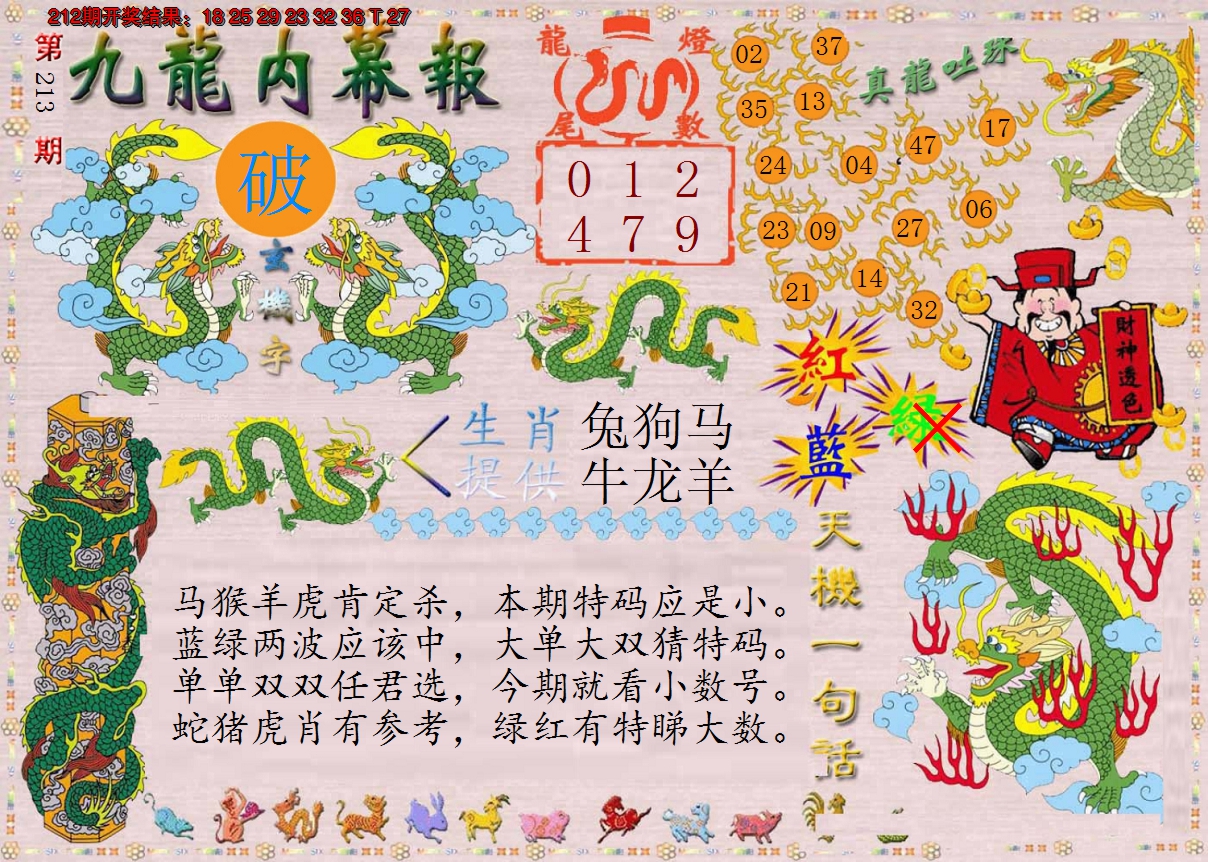 212期开奖结果：18 25 29 23 32 36 T 27
第213期
九龍内幕報
破
玄機字
龍燈
尾數
0 1 2
4 7 9
真龍吐珠
02 37
35 13
24 04 47 17
23 09 27 06
21 14 32
財神透色
紅
綠
藍
生肖 兔狗马
提供 牛龙羊
天機一句話
马猴羊虎肯定杀，本期特码应是小。
蓝绿两波应该中，大单大双猜特码。
单单双双任君选，今期就看小数号。
蛇猪虎肖有参考，绿红有特睇大数。